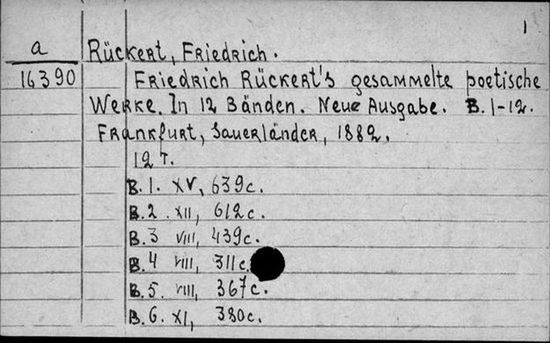 1
a Rückert, Friedrich.
16390 Friedrich Rückert's gesammelte poetische
Werke. In 12 Bänden. Neue Ausgabe. B. 1-12.
Frankfurt, Sauerländer, 1882.
12 т.
B. 1. XV, 639c.
B. 2. XII, 612c.
B. 3 VIII, 439c.
B. 4 VIII, 311c.
B. 5. VIII, 367c.
B. 6. XI, 380c.